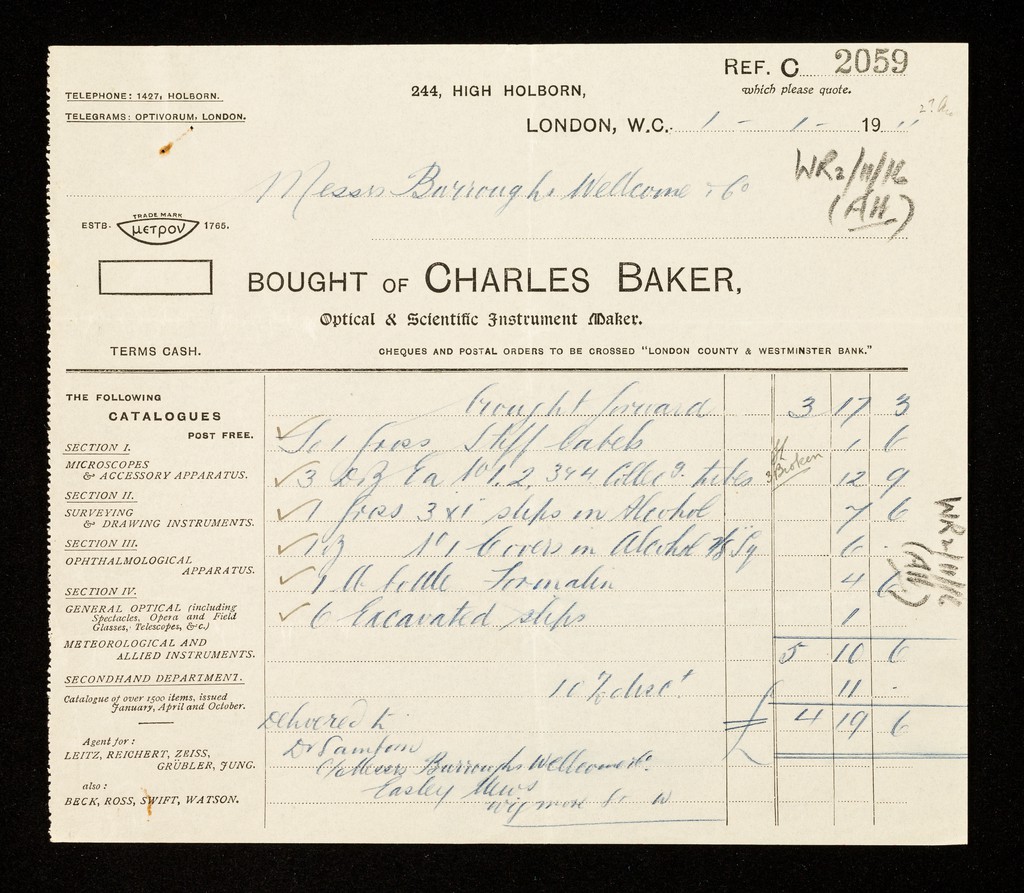 REF. C 2059
which please quote.
TELEPHONE: 1427, HOLBORN.
TELEGRAMS: OPTIVORUM, LONDON.
244, HIGH HOLBORN,
LONDON, W.C. 1 - 1 - 19 11
WR2/11/16
(AH.)
Messrs Burroughs Wellcome & Co
TRADE MARK
ESTB. μετρον 1765.
BOUGHT OF CHARLES BAKER,
Optical & Scientific Instrument Maker.
TERMS CASH.
CHEQUES AND POSTAL ORDERS TO BE CROSSED "LONDON COUNTY & WESTMINSTER BANK."
THE FOLLOWING
CATALOGUES
POST FREE.
SECTION I.
MICROSCOPES
& ACCESSORY APPARATUS.
SECTION II.
SURVEYING
& DRAWING INSTRUMENTS.
SECTION III.
OPHTHALMOLOGICAL
APPARATUS.
SECTION IV.
GENERAL OPTICAL (including
Spectacles, Opera and Field
Glasses, Telescopes, &c.)
METEOROLOGICAL AND
ALLIED INSTRUMENTS.
SECONDHAND DEPARTMENT.
Catalogue of over 1500 items, issued
January, April and October.
Agent for:
LEITZ, REICHERT, ZEISS,
GRÜBLER, JUNG.
also:
BECK, ROSS, SWIFT, WATSON.
brought forward 3 17 3
To 1 Gross Stiff labels 1 6
3 Dz Ea No 1, 2, 3 & 4 Collecg. tubes 12 9
3 Broken
1 Gross 3 x 1 slips in Alcohol 7 6
No 1 Covers in Alcohol 7/8 Sq 6 -
1 lb bottle Formalin 4 6
6 Excavated slips 1
WR2/11/16
(AH.)
5 10 6
10 % disct 11 -
£ 4 19 6
Delivered to
Dr Sambon
C/o Messrs Burroughs Wellcome & Co.
Easley Mews
Wigmore St. W